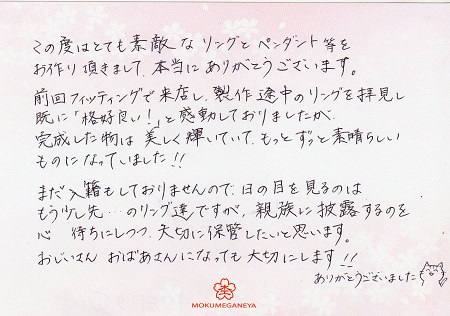 この度はとても素敵なリングとペンダント等を
お作り頂きまして、本当にありがとうございます。
前回フィッティングで来店し、製作途中のリングを拝見し
既に「格好良い!」と感動しておりましたが、
完成した物は美しく輝いていて、もっとずっと素晴らしい
ものになっていました!!
まだ入籍もしておりませんので、日の目を見るのは
もう少し先…のリング達ですが、親族に披露するのを
心待ちにしつつ、大切に保管したいと思います。
おじいさん おばあさんになっても大切にします!!
ありがとうございました
MOKUMEGANEYA